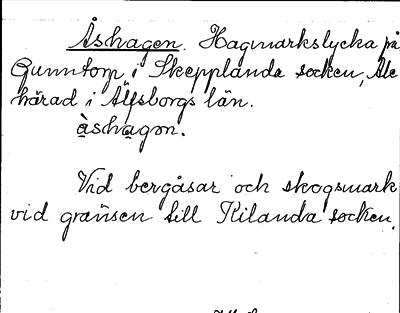 Åshagen. Hagmarkslycka på
Gunntorp i Skepplanda socken, Ale
härad i Älfsborgs län.
àshagon.
Vid bergåsar och skogsmark
vid gränsen till Kilanda socken.